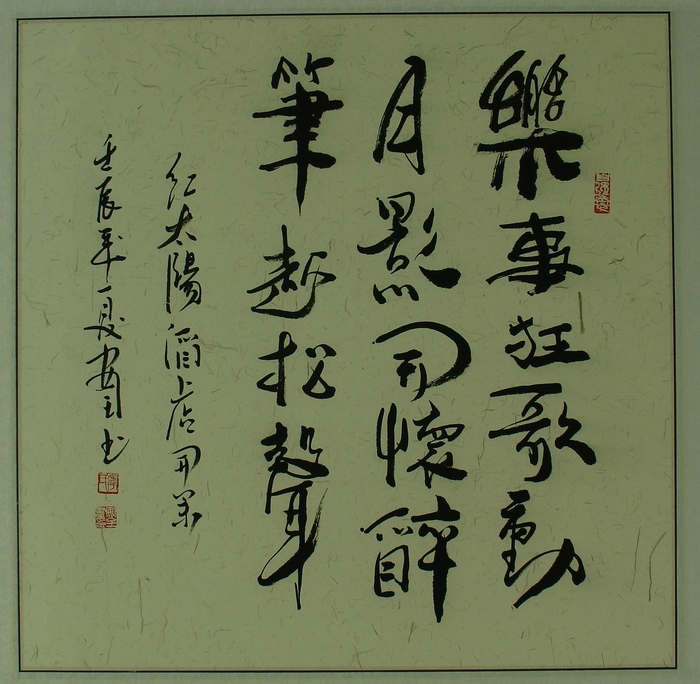 樂事狂歌動
月影開懷醉
筆起松聲
红太陽酒店開業
壬辰年夏玉书